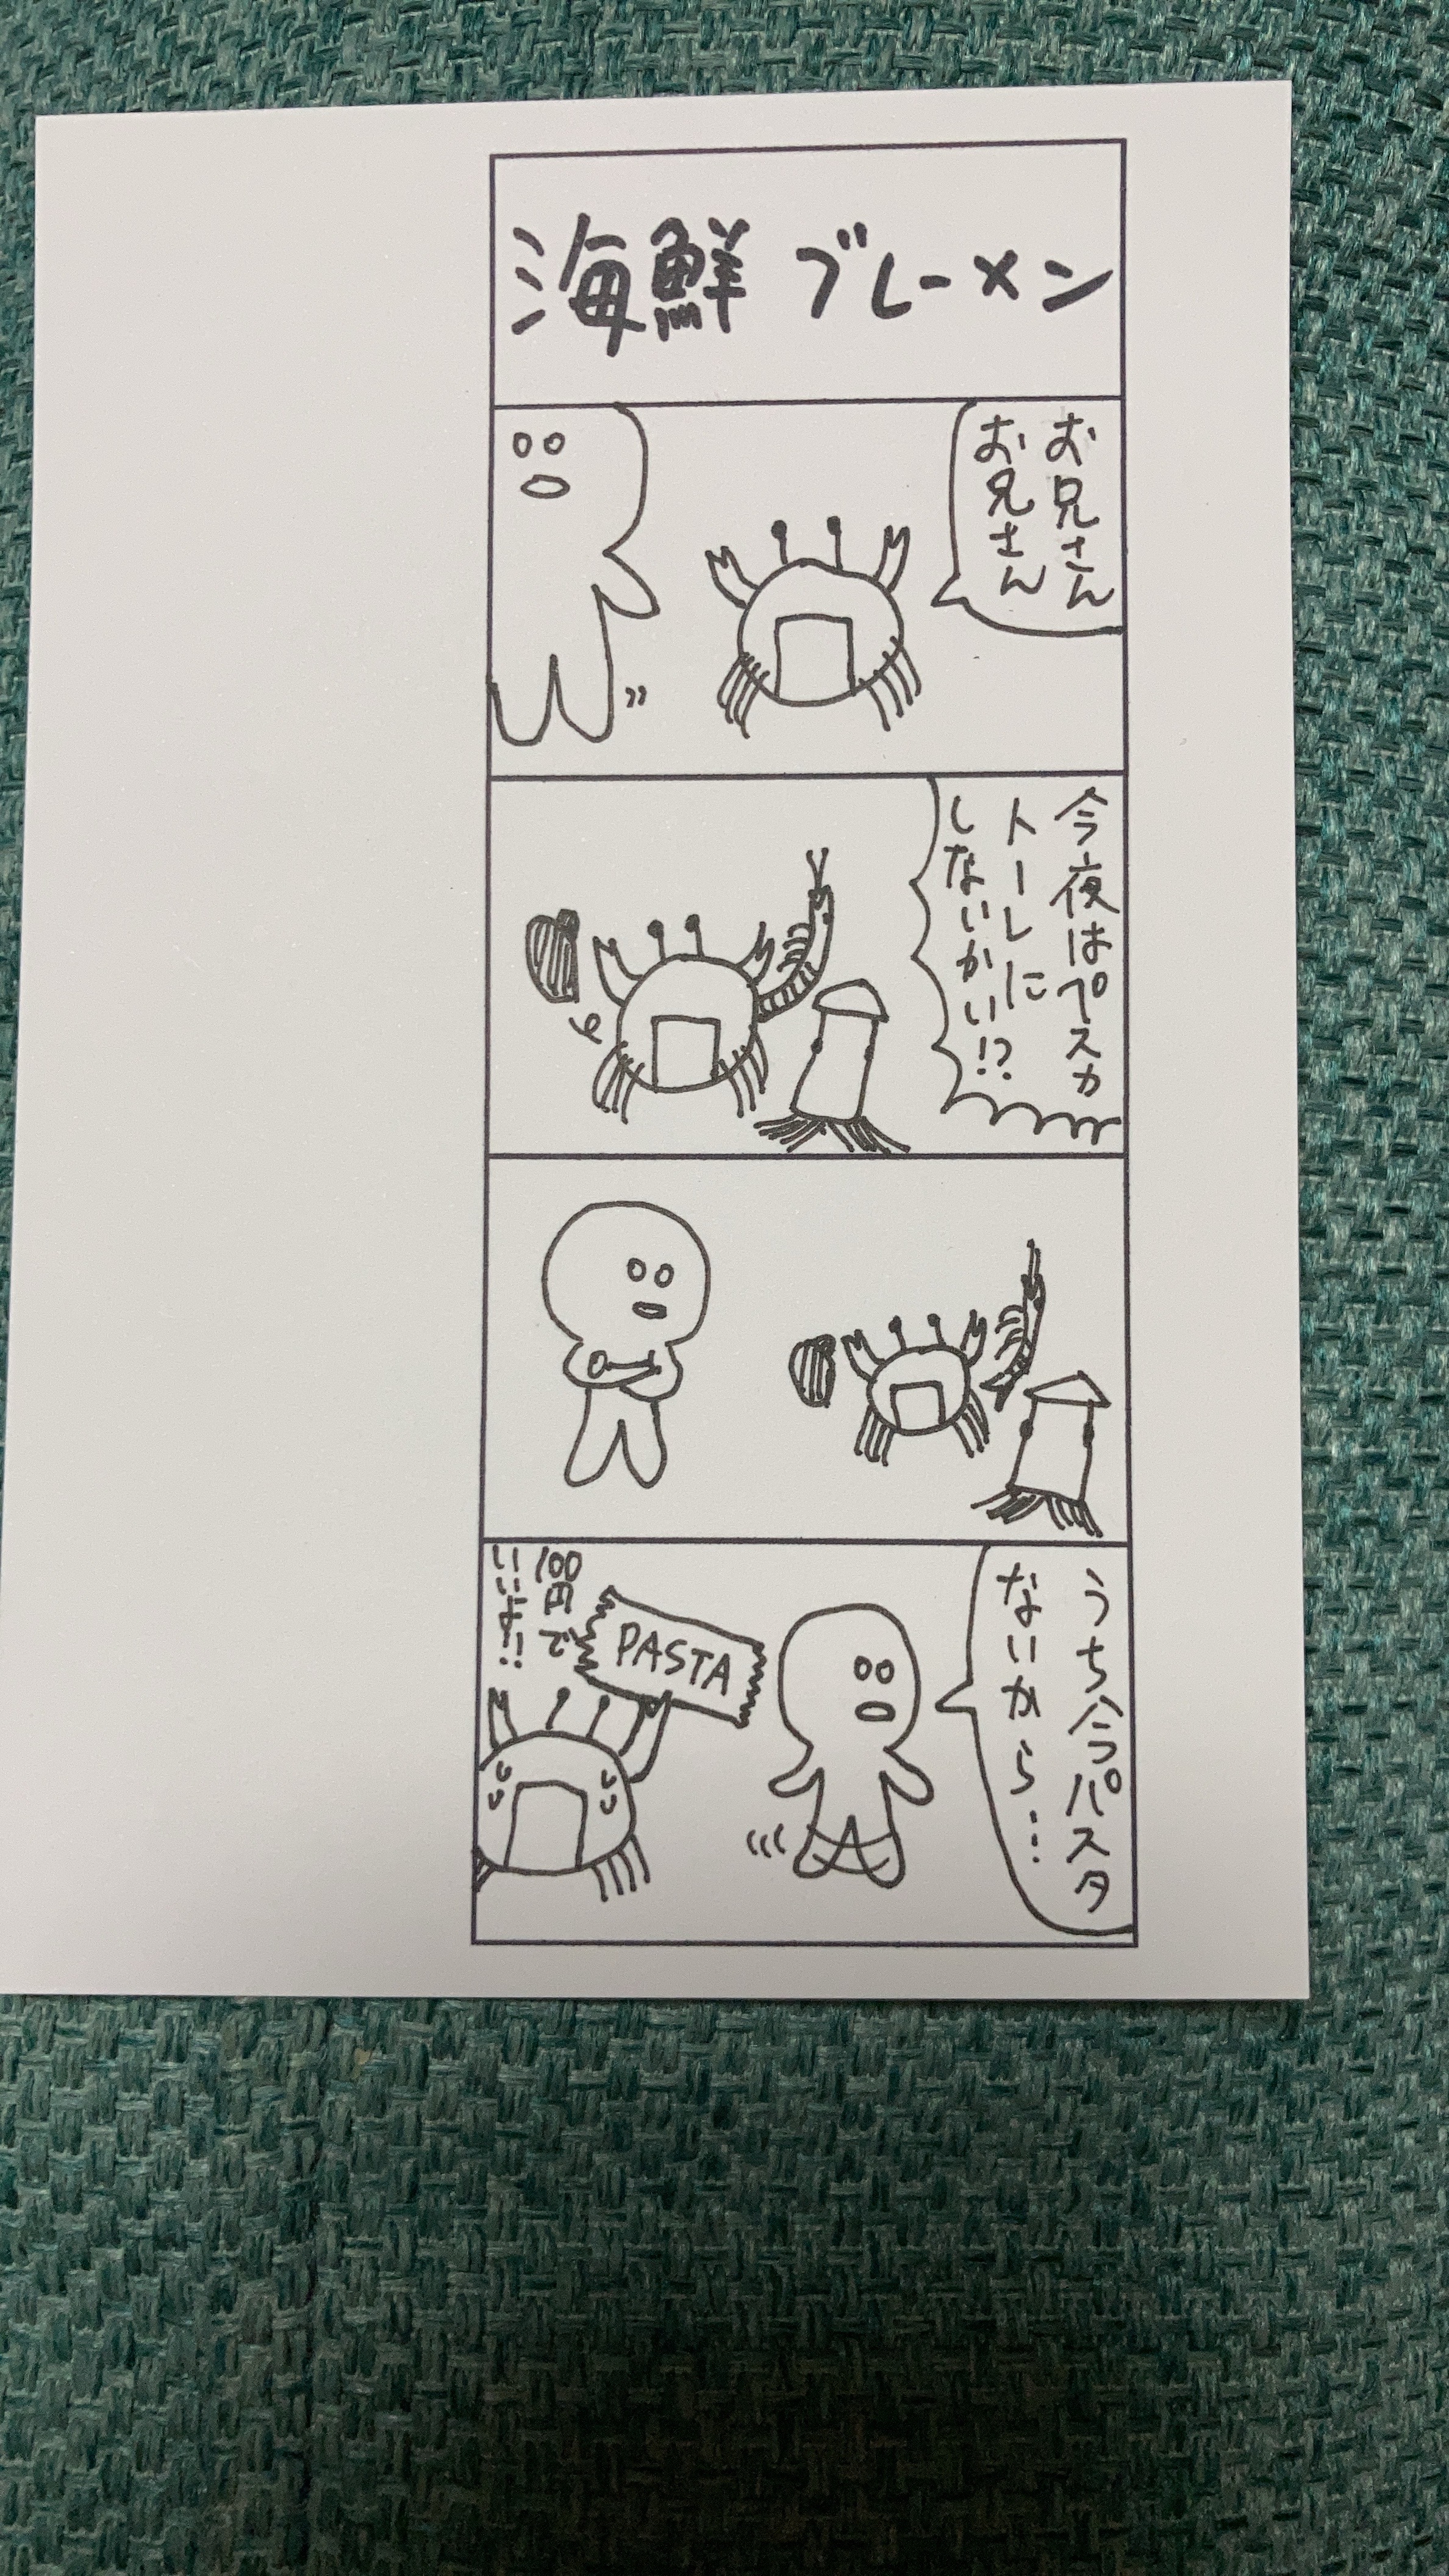 海鮮ブレーメン
お兄さん
お兄さん
今夜はペスカ
トーレに
しないかい!?
うち今パスタ
ないから…
PASTA
100円で
いいよ!!